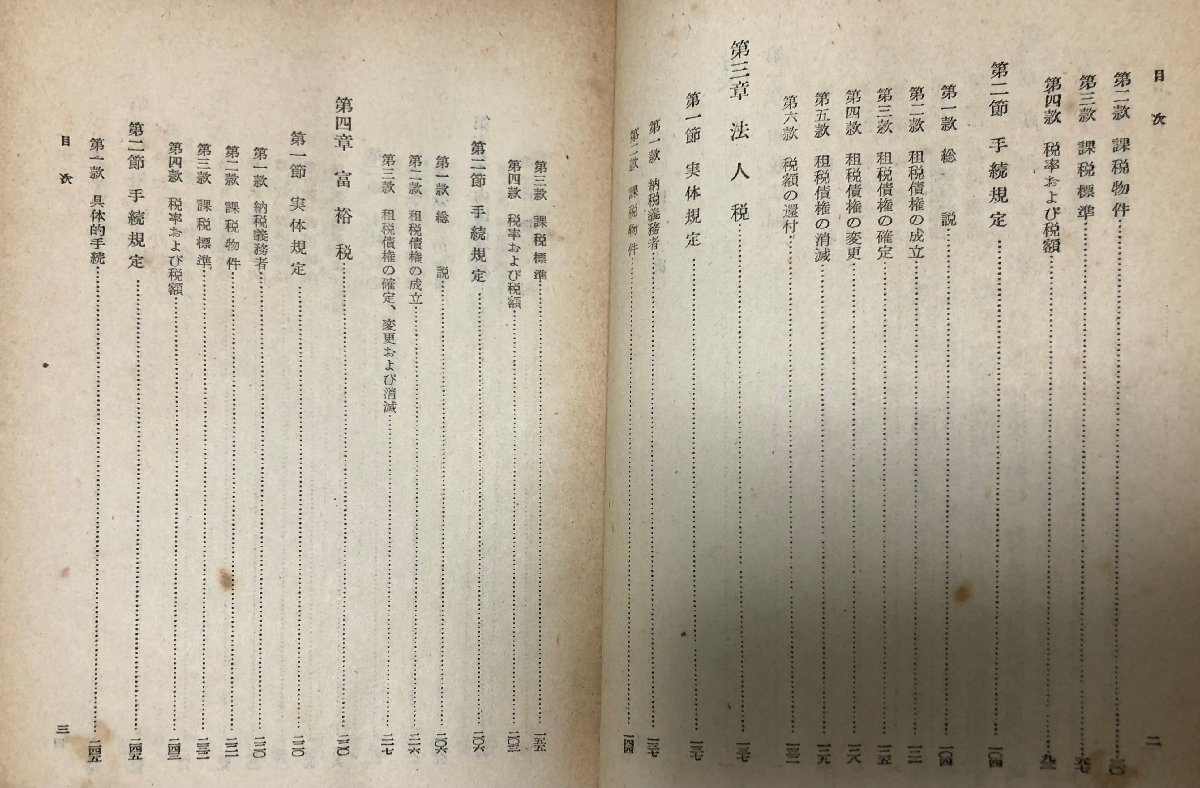 目次
第二款 課税物件
第三款 課税標準
第四款 税率および税額
第二節 手続規定 一〇四
第一款 総説 一〇四
第二款 租税債権の成立
第三款 租税債権の確定
第四款 租税債権の変更
第五款 租税債権の消滅
第六款 税額の還付
第三章 法人税
第一節 実体規定
第一款 納税義務者
第二款 課税物件 一四四
二
第三款 課税標準
第四款 税率および税額
第二節 手続規定
第一款 総説
第二款 租税債権の成立
第三款 租税債権の確定、変更および消滅
第四章 富裕税
第一節 実体規定
第一款 納税義務者
第二款 課税物件
第三款 課税標準
第四款 税率および税額
第二節 手続規定
第一款 具体的手続
目次
三